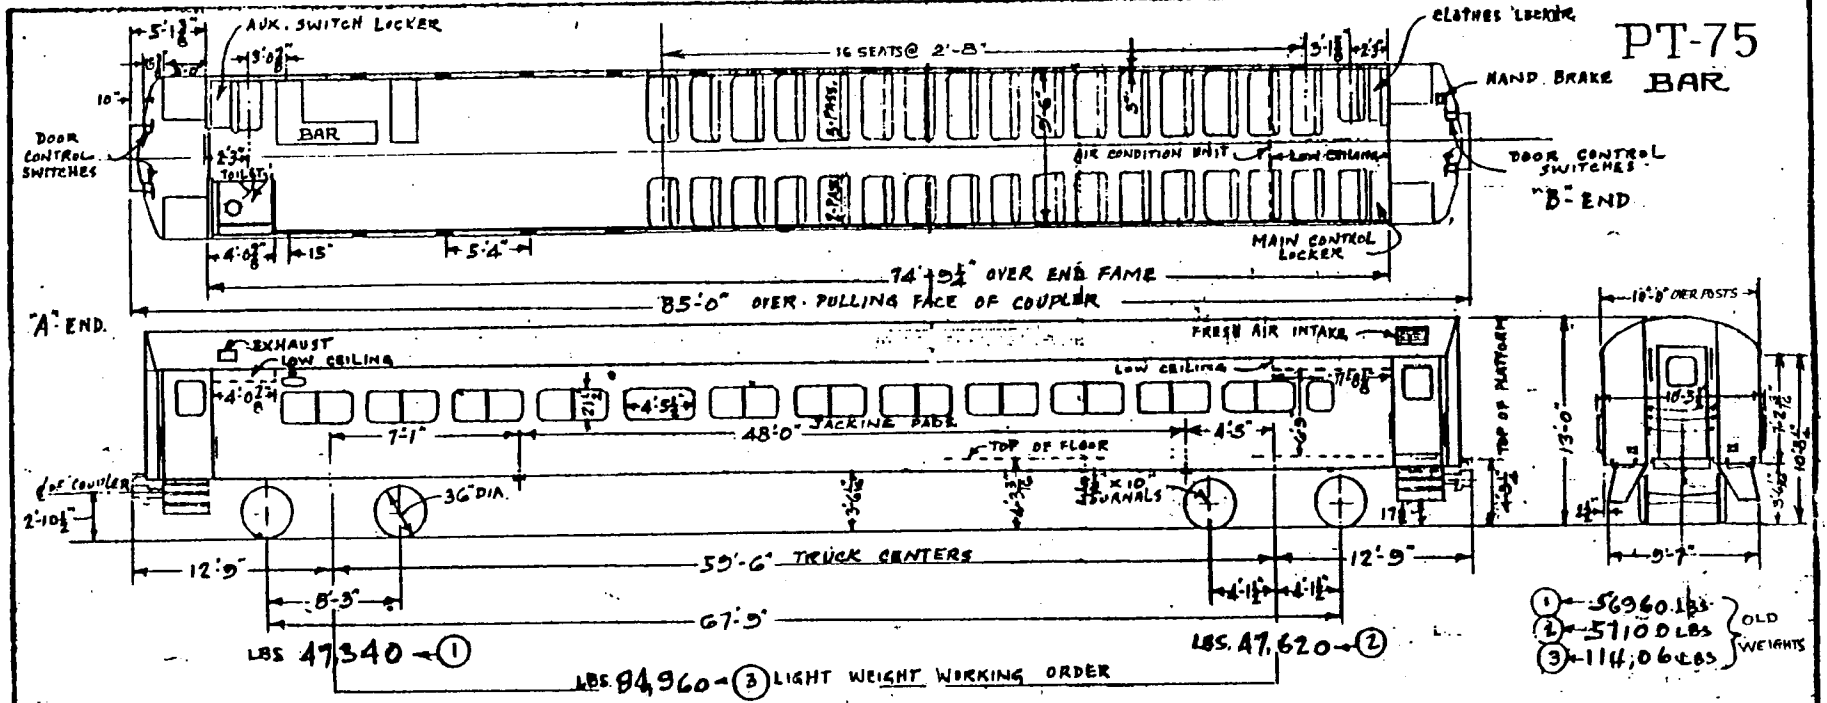 PT-75
BAR
5'-1⅜"
AUX. SWITCH LOCKER
3'-0⅞"
16 SEATS @ 2'-8"
3'-1⅛"
2'-3"
CLOTHES LOCKER
HAND BRAKE
10"
DOOR
CONTROL
SWITCHES
BAR
3-PASS.
9'-6"
2'-3"
TOILET
2-PASS.
AIR CONDITION UNIT
LOW CEILING
DOOR CONTROL
SWITCHES
"B"-END
MAIN CONTROL
LOCKER
4'-0⅞"
15"
5'-4"
74'-9¼" OVER END FAME
85'-0" OVER PULLING FACE OF COUPLER
"A" END.
EXHAUST
LOW CEILING
FRESH AIR INTAKE
LOW CEILING
4'-0⅞"
4'-5½"
7'-1"
48'-0" JACKING PADS
4'-5"
TOP OF FLOOR
TOP OF PLATFORM
13'-0"
10'-0" OVER POSTS
℄ OF COUPLER
2'-10½"
36" DIA.
X 10"
JURNALS
17"
9'-7"
12'-9"
59'-6" TRUCK CENTERS
12'-9"
8'-3"
4'-1½"
4'-1½"
67'-9"
LBS 47,340 ← 1
LBS. 47,620 ← 2
LBS. 94,960 ← 3 LIGHT WEIGHT WORKING ORDER
1 ← 56960 LBS
2 ← 57100 LBS
3 ← 114,06 LBS
OLD
WEIGHTS